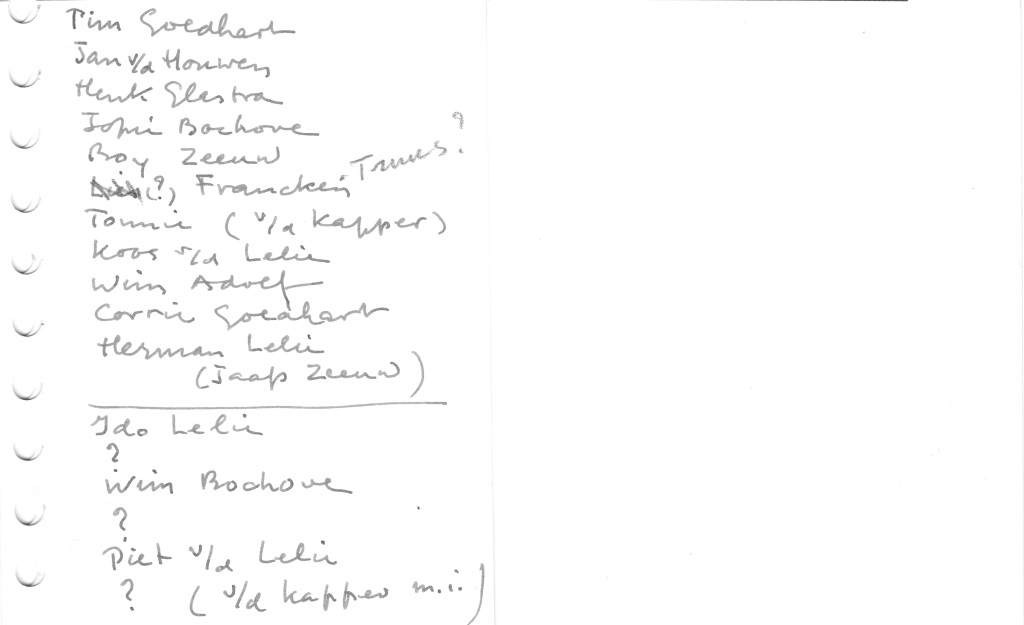 Pim Goedhart
Jan v/d Houwen
Henk Elestra
Jopie Bochove
Boy Zeeuw
(?) Francken Truus?
Tonnie (v/d Kapper)
Koos v/d Lelie
Wim Adolf
Corrie Goedhart
Herman Lelie
(Jaap Zeeuw)
Ido Lelie
?
Wim Bochove
?
Piet v/d Lelie
? (v/d Kapper m.i.)